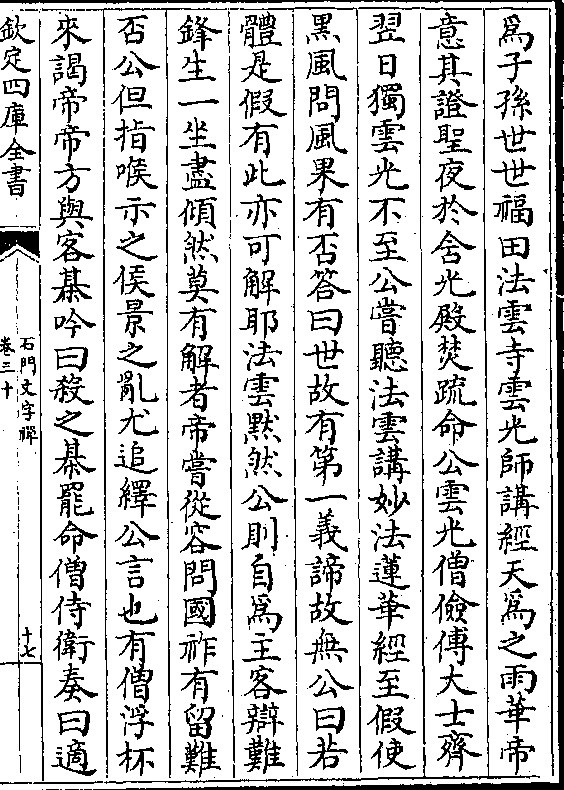 爲子孫世世福田法雲寺雲光師講經天爲之雨華帝
意其證聖夜於舍光殿焚疏命公雲光僧儉傅大士齊
翌日獨雲光不至公嘗聽法雲講妙法蓮華經至假使
黒風問風果有否答曰世故有第一義諦故無公曰若
體是假有此亦可解耶法雲黙然公則自爲主客辯難
鋒生一坐盡傾然莫有解者帝嘗從容問國祚有留難
否公但指喉示之侯景之亂尤追繹公言也有僧浮杯
來謁帝帝方與客棊吟曰殺之棊罷命僧侍衛奏曰適
欽定四庫全書
石門文字禪
卷三十
十七